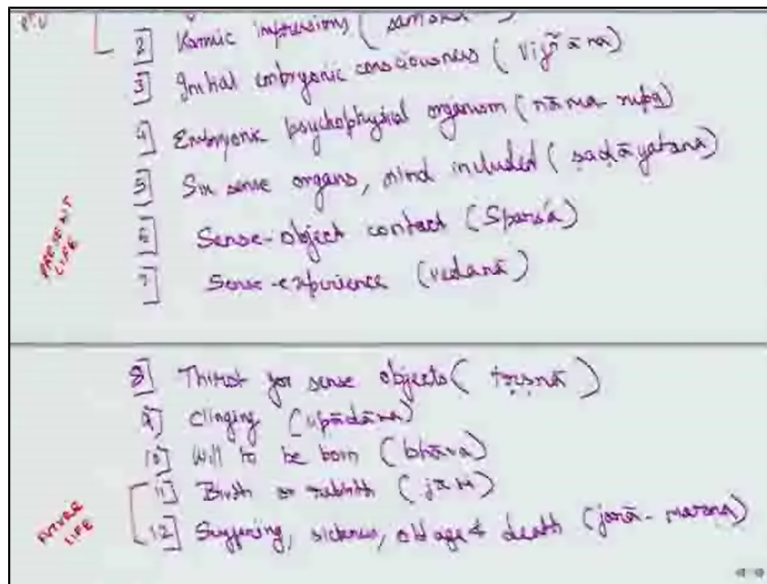 2] Karmic impressions (
3] Initial embryonic consciousness (vijñāna)
4] Embryonic psychophysical organism (nāma-rupa)
5] Six sense organs, mind included (ṣaḍāyatana)
PRESENT LIFE
6] Sense-object contact (Sparśa)
7] Sense-experience (vedanā)
8] Thirst for sense objects (tṛṣṇā)
9] Clinging (upādāna)
10] Will to be born (bhāva)
11] Birth or rebirth (jāti)
FUTURE LIFE
12] Suffering, sickness, old age & death (jarā-maraṇa)